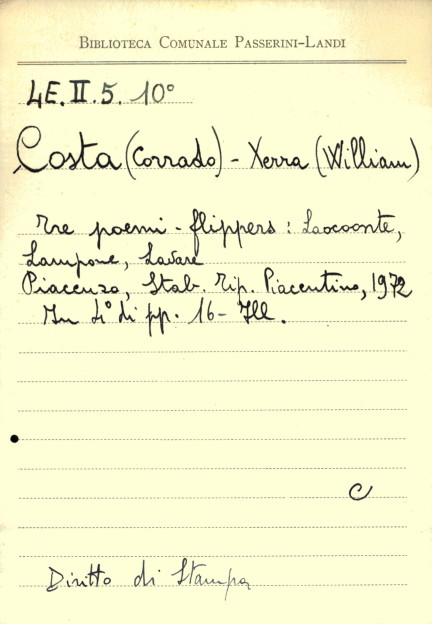 BIBLIOTECA COMUNALE PASSERINI-LANDI
4E.II.5. 10°
Costa (Corrado) - Xerra (William)
Tre poemi - flippers: Laocoonte,
Lampone, Lavare
Piacenza, Stab. Tip. Piacentino, 1972
In 4° di pp. 16 - Ill.
C
Diritto di Stampa